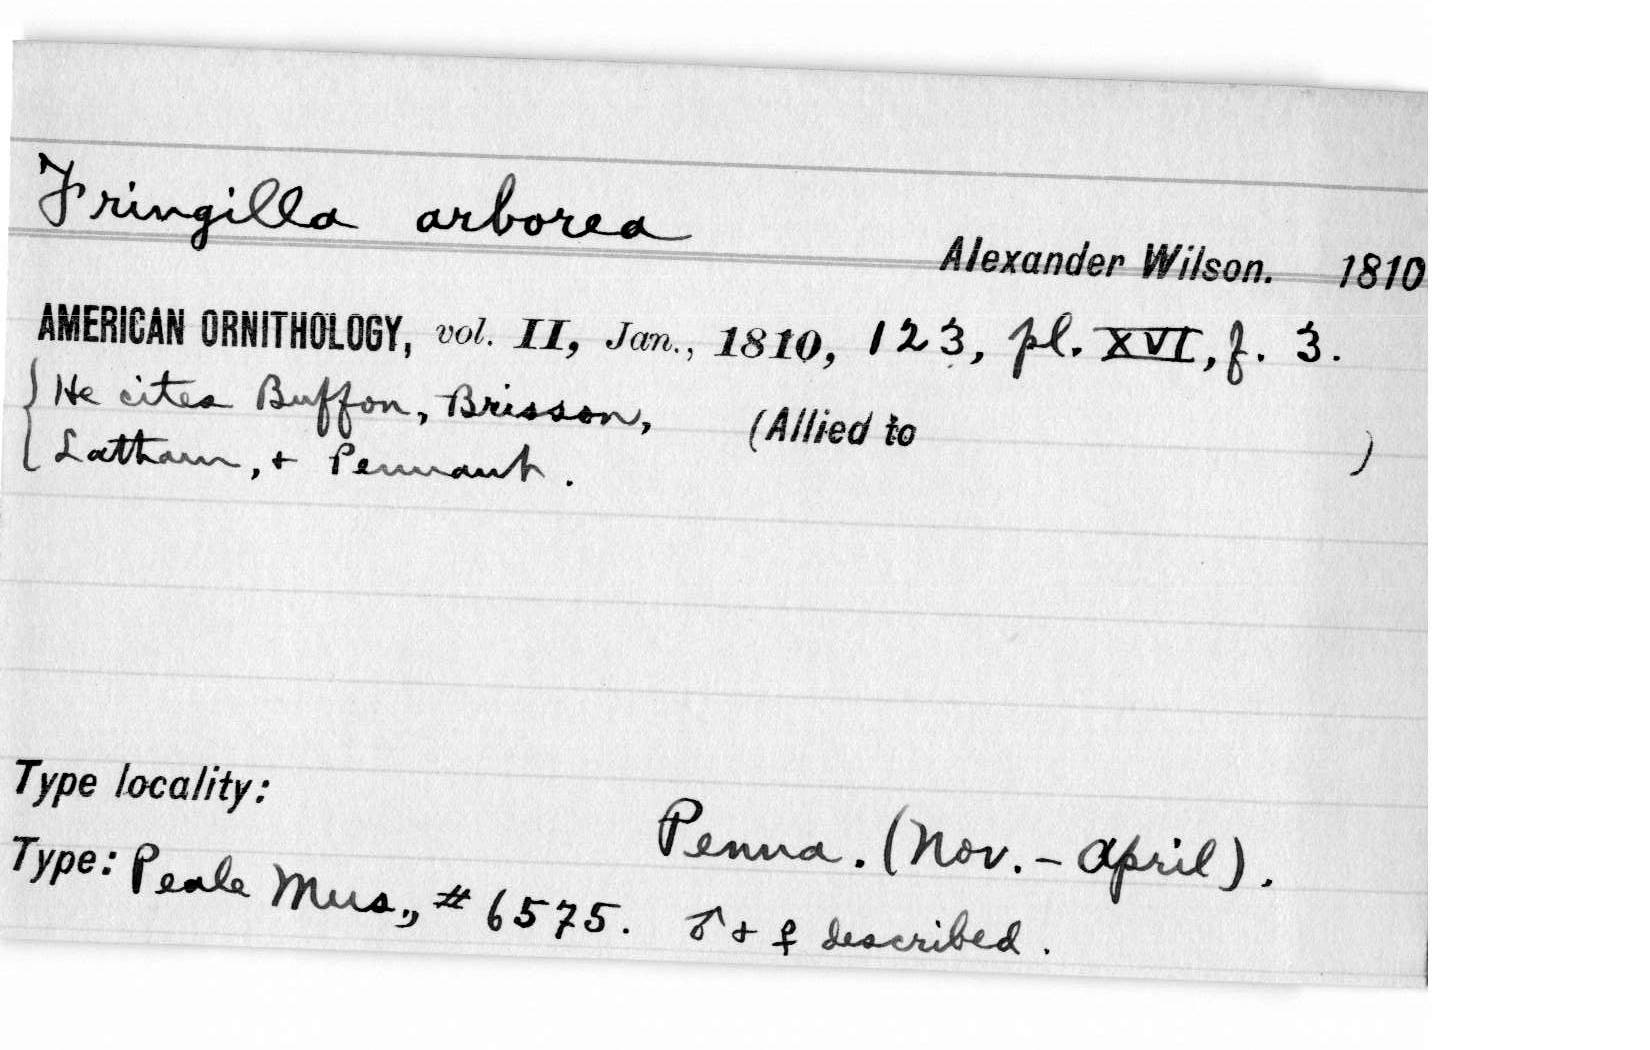 Fringilla arborea
Alexander Wilson. 1810
AMERICAN ORNITHOLOGY, vol. II, Jan., 1810, 123, pl. XVI, f. 3.
{He cites Buffon, Brisson,
Latham, + Pennant.
(Allied to )
Type locality:
Penna. (Nov. - April).
Type: Peale Mus., # 6575. ♂ + ♀ described.